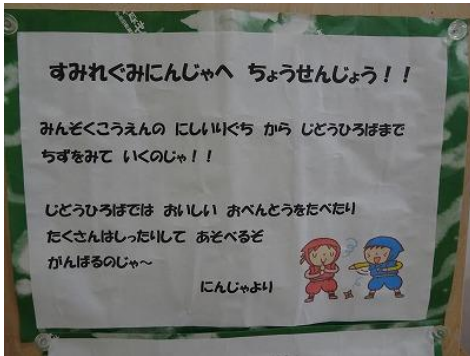 すみれぐみにんじゃへ ちょうせんじょう！！
みんぞくこうえんの にしいりぐち から じどうひろばまで
ちずをみて いくのじゃ！！
じどうひろばでは おいしい おべんとうをたべたり
たくさんはしったりして あそべるぞ
がんばるのじゃ～
にんじゃより